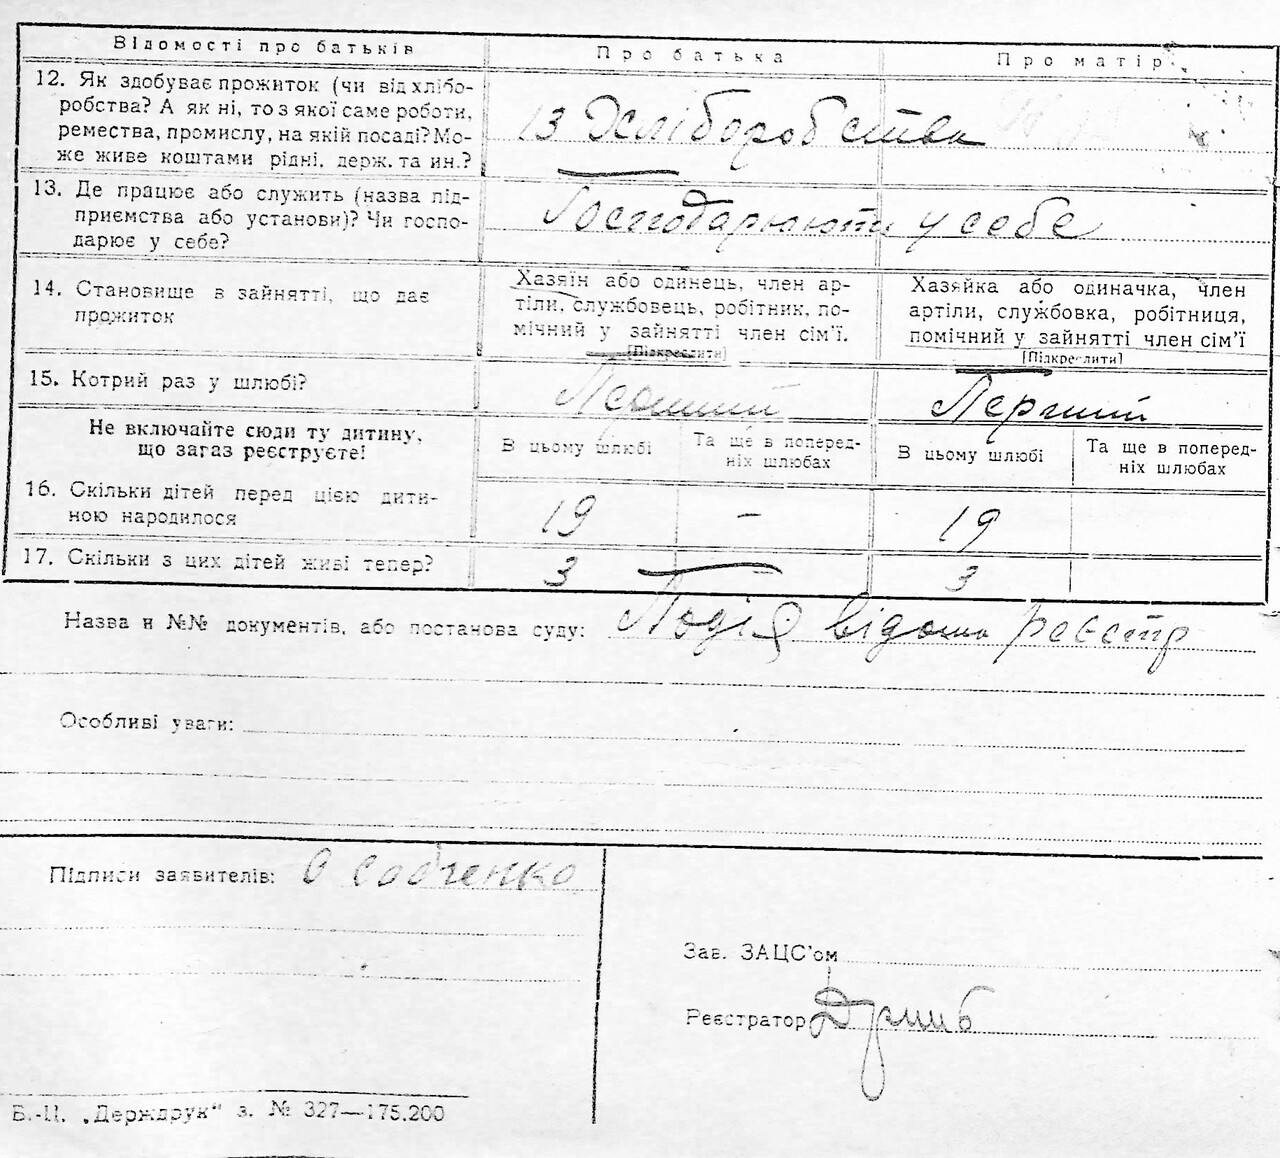 Відомості про батьків Про батька Про матір
12. Як здобуває прожиток (чи від хлібо-
робства? А як ні, то з якої саме роботи,
ремества, промислу, на якій посаді? Мо-
же живе коштами рідні, держ. та ин.?
13 Хліборобства
13. Де працює або служить (назва під-
приємства або установи)? Чи госпо-
дарює у себе?
Господарюють у себе
14. Становище в зайнятті, що дає
прожиток
Хазяїн або одинець, член ар-
тіли, службовець, робітник, по-
мічний у зайнятті член сім'ї.
[Підкреслити]
Хазяйка або одиначка, член
артіли, службовка, робітниця,
помічний у зайнятті член сім'ї
[Підкреслити]
15. Котрий раз у шлюбі? Перший Перший
Не включайте сюди ту дитину,
що зараз реєструєте!
В цьому шлюбі
Та ще в поперед-
ніх шлюбах
В цьому шлюбі
Та ще в поперед-
ніх шлюбах
16. Скільки дітей перед цією дити-
ною народилося
19 – 19
17. Скільки з цих дітей живі тепер? 3 3
Назва и №№ документів, або постанова суду: Подія відома реєстр
Особливі уваги:
Підписи заявителів: О
Зав. ЗАЦС'ом
Реєстратор
Б.-Ц. „Держдрук" з. № 327—175.200